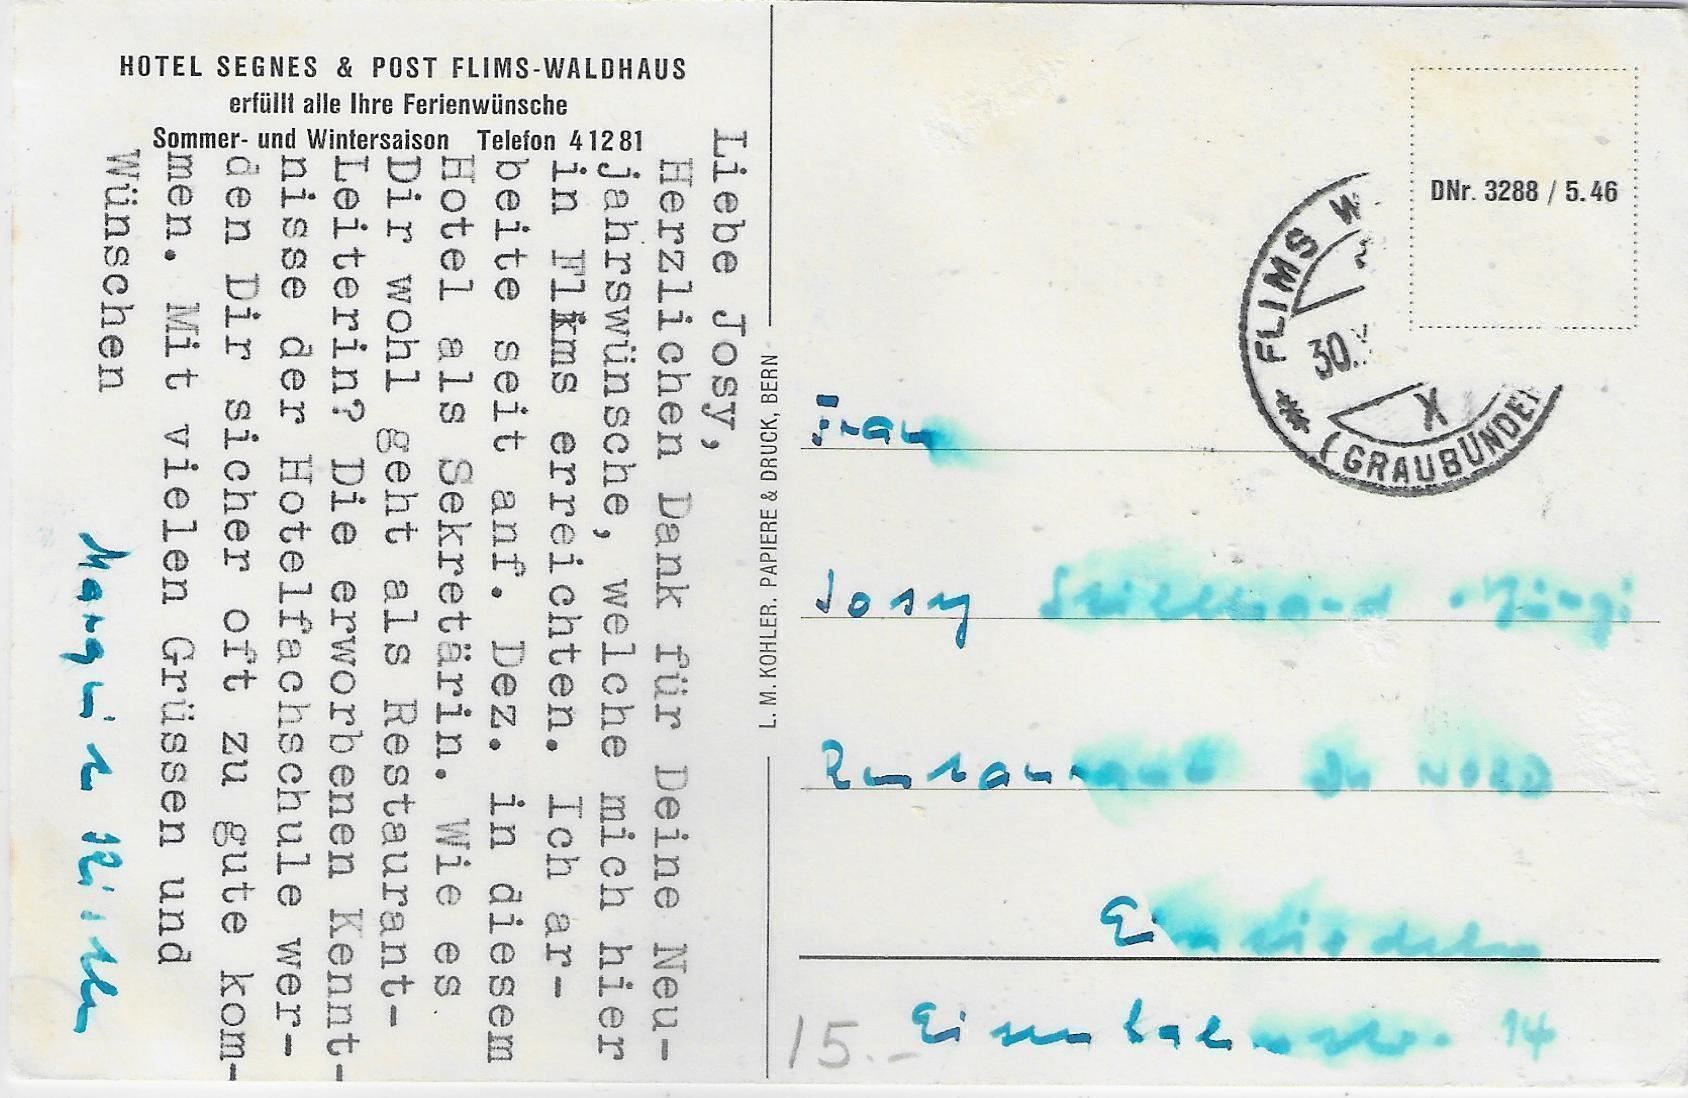 HOTEL SEGNES & POST FLIMS-WALDHAUS
erfüllt alle Ihre Ferienwünsche
Sommer- und Wintersaison Telefon 4 12 81
Liebe Josy,
Herzlichen Dank für Deine Neu-
jahrswünsche, welche mich hier
in Flims erreichten. Ich ar-
beite seit anf. Dez. in diesem
Hotel als Sekretärin. Wie es
Dir wohl geht als Restaurant-
Leiterin? Die erworbenen Kennt-
nisse der Hotelfachschule wer-
den Dir sicher oft zu gute kom-
men. Mit vielen Grüssen und
Wünschen
L. M. KOHLER, PAPIERE & DRUCK, BERN
DNr. 3288 / 5.46
FLIMS W
30.
(GRAUBÜNDEN
Frau
Josy
Restaurant
Einsiedeln
Eisenbahnstr. 14
15.-